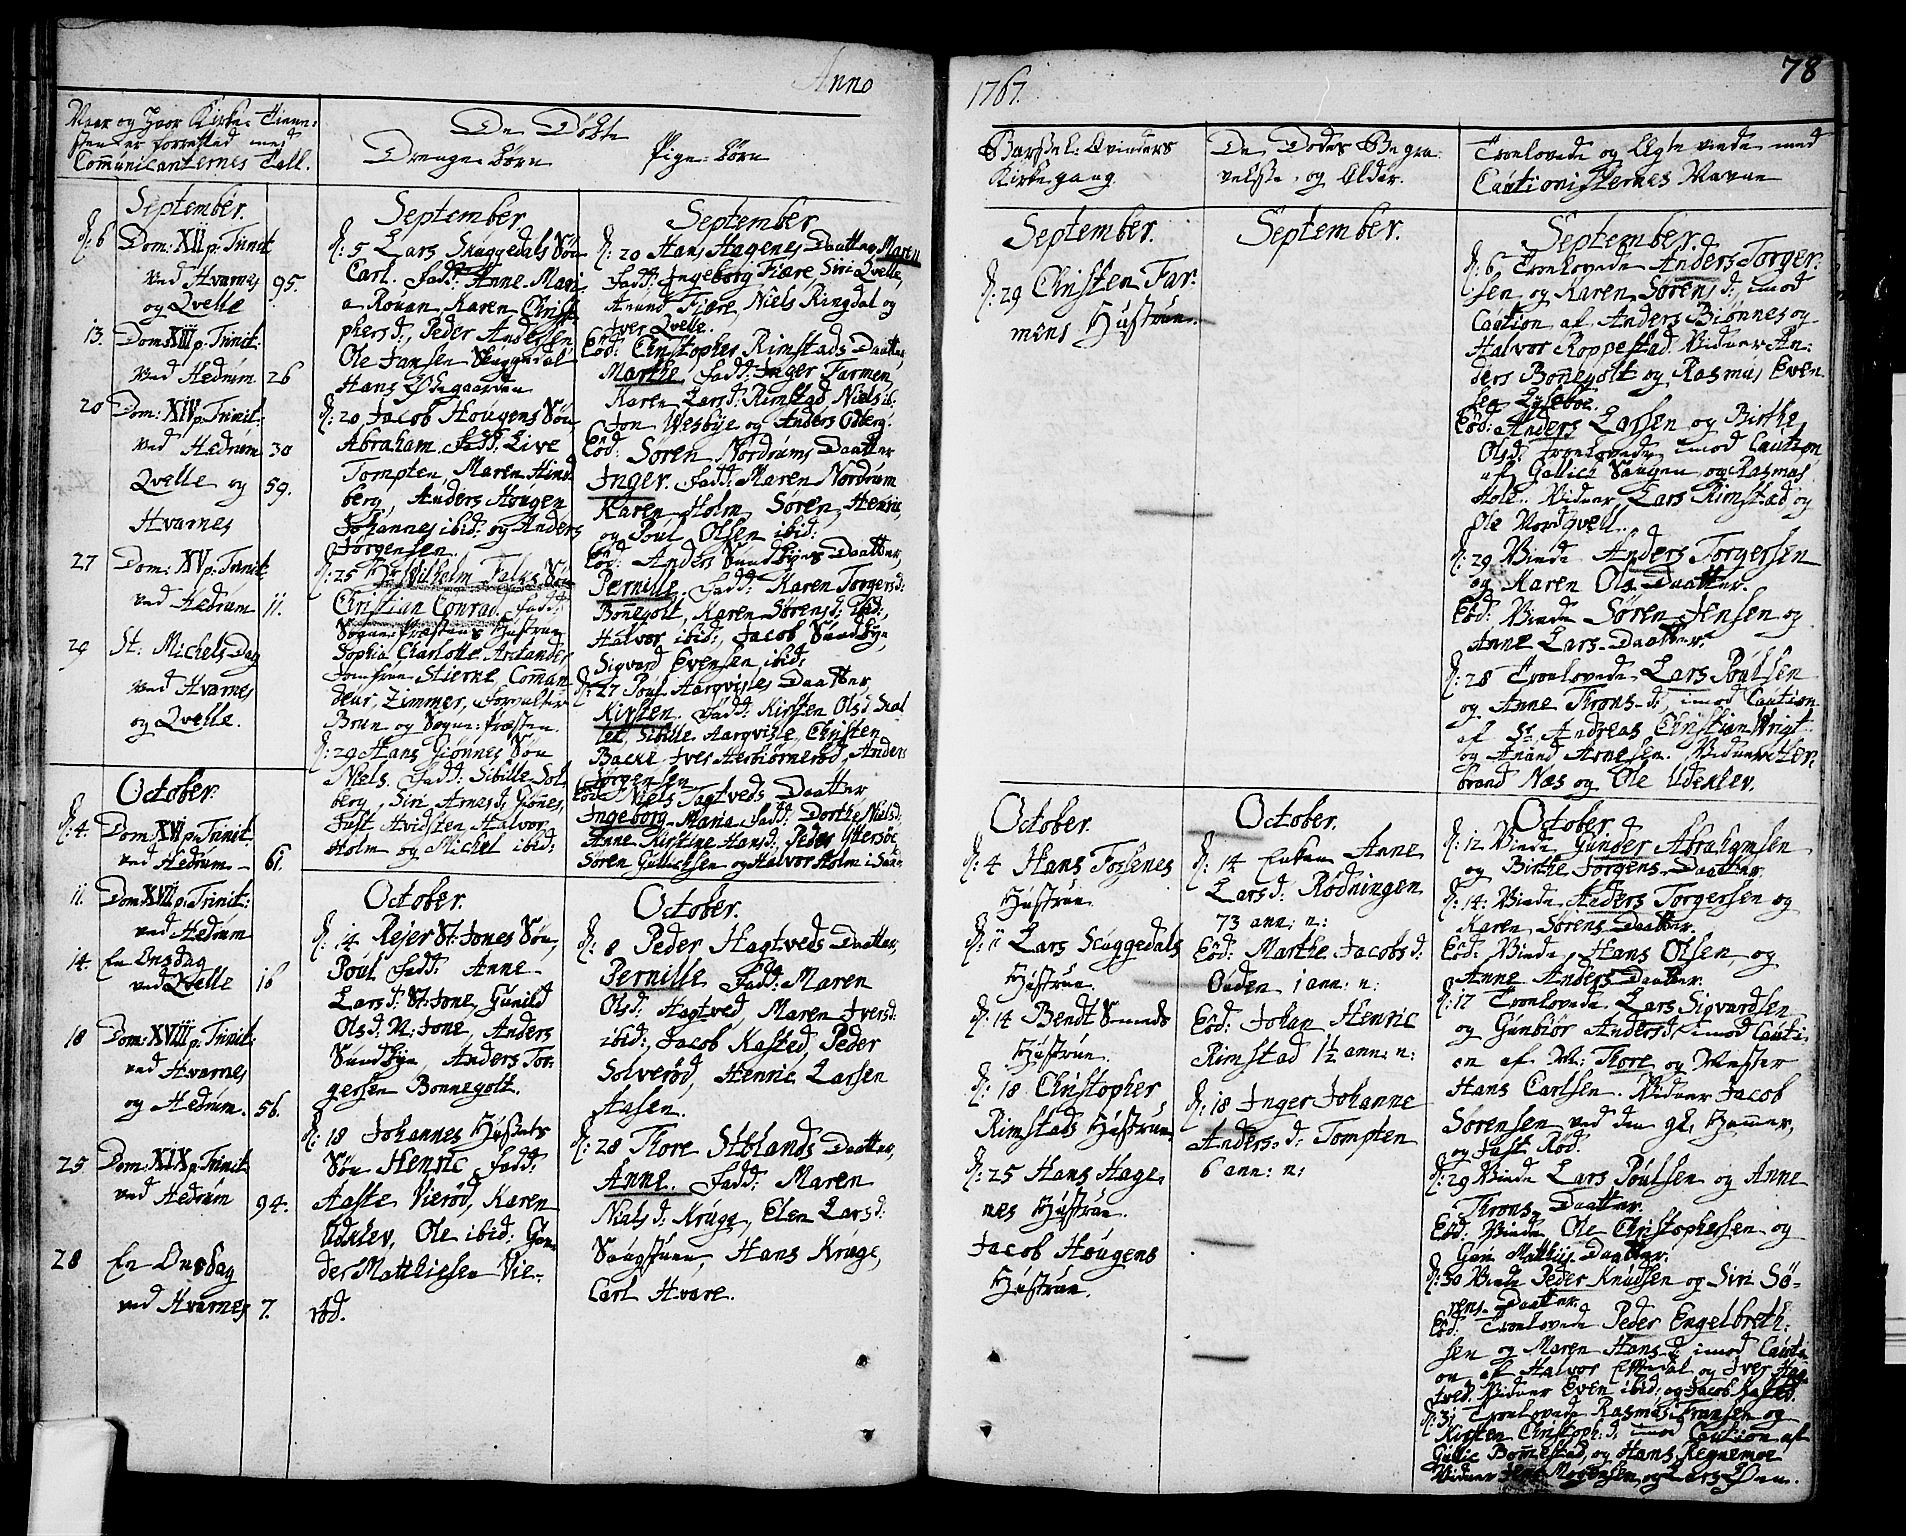 Anno
Naar og hvor Kirke-Tienne-
sten er forretted med
Communicanternes Tall.
De Døbte
Drenge-børn
Pige-børn
September.
d: 6 Dom: XII p: Trinit
ved Hvarnes
og Qvelle 95.
13. Dom: XIII p: Trinit:
ved Hedrum 26
20 Dom: XIV p: Trinit:
ved Hedrum 30
Qvelle og 59.
Hvarnes
27 Dom: XV p: Trinit
ved Hedrum 11.
29 St: Michels Dag
ved Hvarnes
og Qvelle.
October.
d: 4. Dom: XVI p: Trinit
ved Hedrum 61.
11. Dom XVII p: Trinit:
ved Hedrum
14. En Onsdag
ved Qvelle 16
18 Dom: XVIII p: Trinit:
ved Hvarnes
og Hedrum. 56.
25 Dom: XIX p: Trinit
ved Hedrum 94.
28 En Onsdag
ved Hvarnes 7.
September
d: 5 Lars Skuggedals Søn
Carl. Fadd: Anne Mari
a Rouan, Karen Christ
phersd:, Peder Andersen
Ole Jansen Skuggedal
Hans Ødegaarden
d: 20 Jacob Hougens Søn
Abraham. Fadd: Live
Tompten, Maren Hind
berg, Anders Hougen
Johannes ibid: og Anders
Jørgensen.
d: 25 Hr Wilhelm Falks Søn
Christian Conrad. Fadd:
Sogne-Præstens Hustrue
Sophia Charlotte Arctander
Jomfrue Stierne, Comman
deur, Zimmer, Forvalter
Brun og Sogne-Præsten.
d: 29 Hans Giønnes Søn
Niels. Fadd: Sibille Sol
berg, Siri Arnesd: Giønnes,
Just Hvidsten Halvor
Holm og Michel ibid:
October.
d: 14 Rejer St: Jones Søn,
Poul Fadd: Anne
Larsd: St: Jone, Gunild
Olsd: N: Jone, Anders
Sundbye, Anders Tor-
gersen Bonnegolt.
d: 18 Johannes Hussets
Søn Henric Fadd:
Aaste Vierød, Karen
Odklev, Ole ibid: Gun-
der Matthiesen Vie-
rød.
September
d: 20 Hans Hagenes Daatter Maren
Fadd: Ingeborg Fiære, Siri Qvelle,
Anund Fiære, Niels Ringdal og
Iver Qvelle.
Eod: Christopher Rimstads Daatter,
Marthe. Fadd: Inger Farmen,
Karen Larsd: Rimstad Niels ib:
Jon Wesbye og Anders Odberg:
Eod: Søren Nordrums Daatter
Inger. Fadd: Maren Nordrum
Karen Holm, Søren, Henric,
og Poul Olsen ibid:
Eod: Anders Sundbyes Daatter,
Pernille. Fadd: Karen Torgersd:
Bonnegolt, Karen Sørensd: ibd:,
Halvor ibid:, Jacob Sundbye,
Sigvard Evensen ibid:
d: 27 Poul Aarqvisles Daatter
Kirsten. Fadd: Kirsten Olsd
Sibille Aarqvisle, Christen
Backe Iver Anders
Jørgensen
Eod: Niels Tagtveds Daatter
Ingeborg-Maria. Fadd: Dorthe Nielsd:
Anne Kirstine Hansd: Peder Yttersøe
Søren Gullichsen og Halvor Holm
October.
d: 8 Peder Hagtveds Daatter,
Pernille Fadd: Maren
Olsd: Hagtved, Maren Iversd:
ibid:, Jacob Kasted, Peder
Solverød, Henric Larsen
Aasen.
d: 28 Thore Stblands Daatter,
Anne. Fadd: Maren
Nielsd: Kruge, Elen Larsd:
Saugstuen, Hans Kruge,
Carl Hvare.
1767.
78
Barsel-Qvinders
Kirkegang.
De Dødes Begra-
velse og Alder.
Troelovede og Ægteviede med
Cautionisternes Navne
September.
d: 29 Christen Far-
mens Hustrue.
October.
d: 4 Hans Fossenes
Hustrue.
d: 11 Lars Scuggedals
Hustrue.
d: 14 Bendt Smeds
Hustrue.
d: 18 Christopher
Rimstads Hustrue.
d: 25 Hans Hage-
nes Hustrue.
Jacob Hougens
Hustrue.
September.
October.
d: 14 Enken Anne
Larsd: Rødningen
73 ann: n:
Eod: Marthe Jacobsd:
Oeden 1 ann: n:
Eod: Johan Henric
Rimstad 1½ ann: n:
d: 18 Inger Johanne
Anders: d: Tompten
6 ann: n:
September.
d: 6 Troelovede Anders Torger-
sen og Karen Sørensd: imod
Caution af Anders Biønnes og
Halvor Roppestad. Vidner An-
ders Bonnegolt og Rasmus Even
sen Lyseboe.
Eod: Anders Larsen og Birthe
Olsd: Troelovede imod Caution
af Gullich Saugen og Rasmus
Holt. Vidner Lars Rimstad og
Ole Nordqvell.
d: 29 Viede Anders Torgersen
og Karen Ols-Daatter.
Eod: Viede Søren Jensen og
Anne Lars-Daatter.
d: 28 Troelovede Lars Poulsen
og Anne Throns-d: imod Caution
af Sr Andreas Christian Wrigt
og Anund Arnesen. Vidner Her-
brand Næs og Ole Udeklev.
October
d: 12 Viede Gunder Abrahamsen
og Birthe Jørgens-Daatter.
d: 14: Viede Anders Torgersen og
Karen Sørens Daatter.
Eod: Viede Hans Olsen, og
Anne Anders-Daatter.
d: 17 Troelovede Lars Sigvardsen
og Gunbiør Andersd: imod Cauti-
on af M: Thore og Mester
Hans Carlsen. Vidner Jacob
Sørensen ved den gl: Hammer,
og Just Rød.
d: 29 Viede Lars Poulsen og Anne
Throns-Daatter.
Eod: Viede Ole Christophersen og
Guri Matthis-Daatter.
d: 30 Viede Peder Knudsen og Siri Sø-
rens-Daatter.
Eod: Troelovede Peder Engelbreth-
sen og Maren Hans-d: imod Cauti-
on af Halvor og Iver Hag-
tved. Vidner Even ibid: og Jacob Kasted.
d: 31 Troelovede Rasmus Fransen og
Kirsten Christoph: d: imod Caution af
Gullic Bommestad, og Hans Regnemoe
Vidner Jens Mogensen, og Lars Øen.